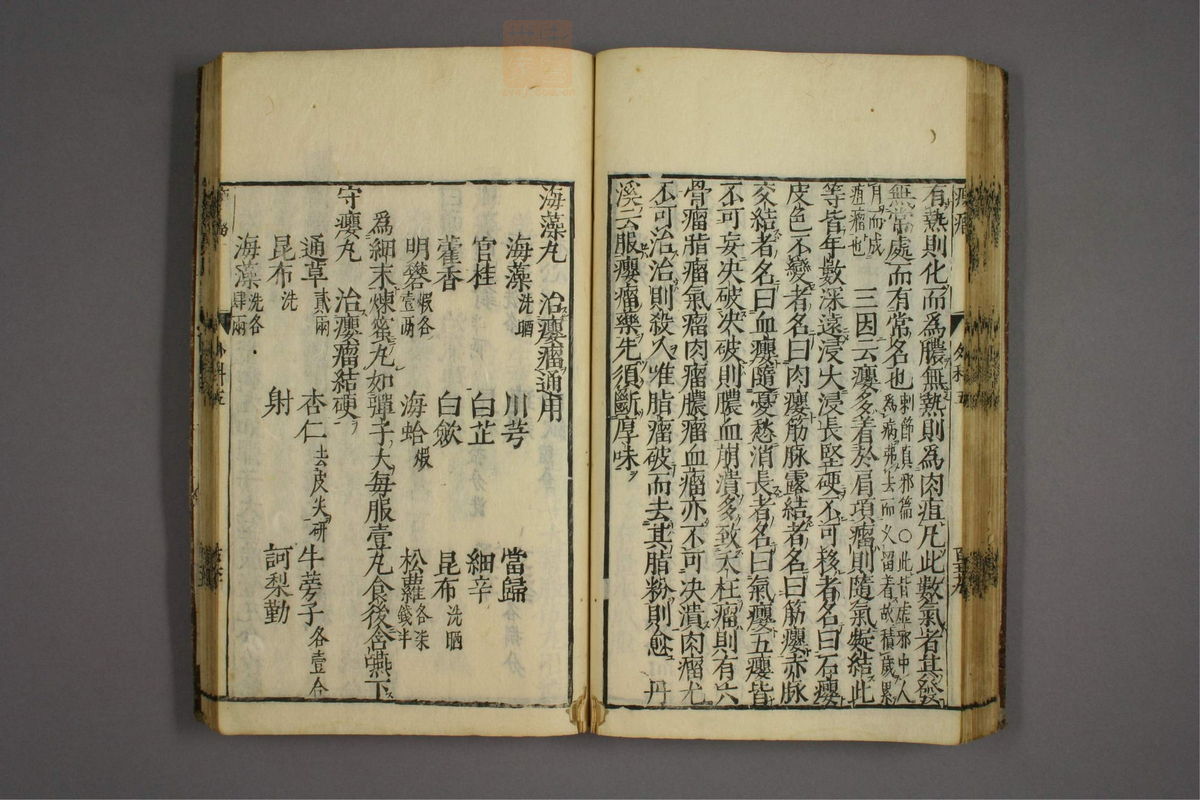 癭瘤
外科五
有熱則化而爲膿無熱則爲肉疽凡此數氣者其發
無常處而有常名也刺節真邪篇〇此昔虛邪中人爲病弗去而久留者故積歲累
月而成疽瘤也　三因云癭多着於肩項瘤則隨氣凝結此
等皆年數深遠浸大浸長堅硬不可移者名曰石癭
皮色不變者名曰肉癭筋脉露結者名曰筋癭赤脉
交結者名曰血癭隨憂愁消長者名曰氣癭五癭皆
不可妄决破决破則膿血崩潰多致夭枉瘤則有六
骨瘤脂瘤氣瘤肉瘤膿瘤血瘤亦不可决潰肉瘤尤
不可治治則殺人唯脂瘤破而去其脂粉則愈　丹
溪云服癭瘤藥先須斷厚味
海藻丸　治癭瘤通用
海藻洗晒　川芎　當歸
官桂　白芷　細辛
藿香　白斂　昆布洗晒
明礬煆各壹兩　海蛤煆　松蘿各柒錢半
爲細末煉蜜丸如彈子大每服壹丸食後含嚥下
守癭丸　治癭瘤結硬
通草貳兩　杏仁去皮尖研　牛蒡子各壹合
昆布洗　射　訶梨勤
海藻洗各肆兩
外科五